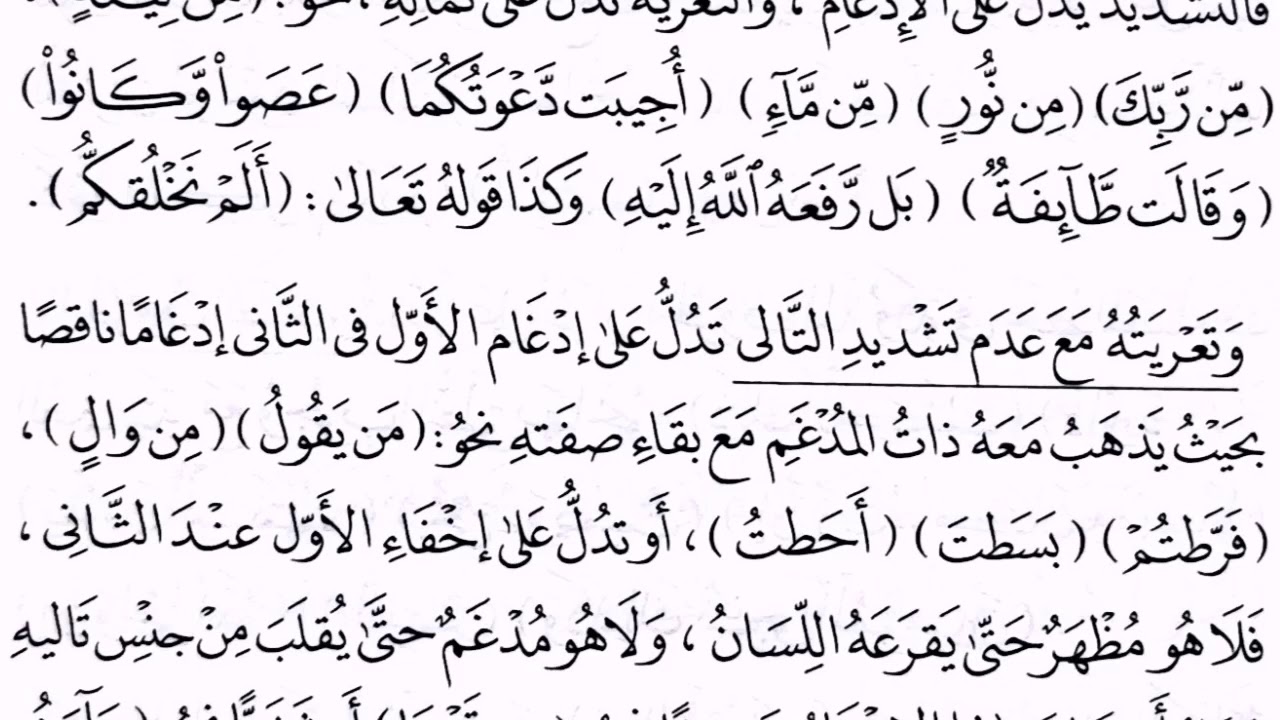 فالتشديد يدل على الإدغام ، والتعرية تدل على كماله ، نحو : (مِن لِّينَةٍ) ،
(مِّن رَّبِّكَ) (مِن نُّورٍ) (مِّن مَّآءٍ) (أُجِيبَت دَّعْوَتُكُمَا) (عَصَواْ وَّكَانُواْ)
(وَقَالَت طَّآئِفَةٌ) (بَل رَّفَعَهُ ٱللَّهُ إِلَيْهِ) وَكَذَا قَوْلُهُ تَعَالىٰ : (أَلَمْ نَخْلُقكُّمْ) .
وَتَعْرِيَتُهُ مَعَ عَدَمِ تَشْدِيدِ التَّالى تَدُلُّ عَلىٰ إدْغَام الأَوّل فى الثَّانى إدْغَامًا ناقصًا
بحَيْثُ يَذهَبُ مَعَهُ ذاتُ المُدْغَمِ مَعَ بَقَاءِ صفَتهِ نحوُ : (مَن يَقُولُ) (مِن وَالٍ) ،
(فَرَّطتُمْ) (بَسَطتَ) (أَحَطتُ) ، أَو تدُلُّ عَلىٰ إخْفَاءِ الأَوّل عنْدَ الثَّانِى ،
فَلَا هُو مُظْهَرٌ حَتّىٰ يَقرَعَهُ اللِّسَانُ ، وَلَا هُو مُدْغَمٌ حتَّىٰ يُقلَبَ مِنْ جنْسِ تَاليهِ